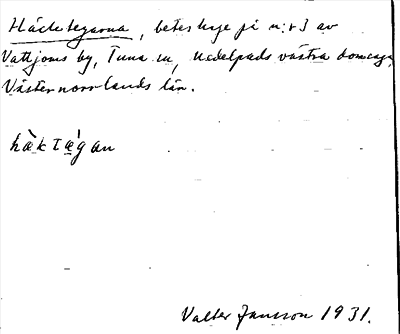 Häcktegarna, beteshage på n:r 3 av
Vattjoms by, Tuna sn, Medelpads västra domsaga,
Västernorrlands län.
hǽktǽgan
Valter Jansson 1931.